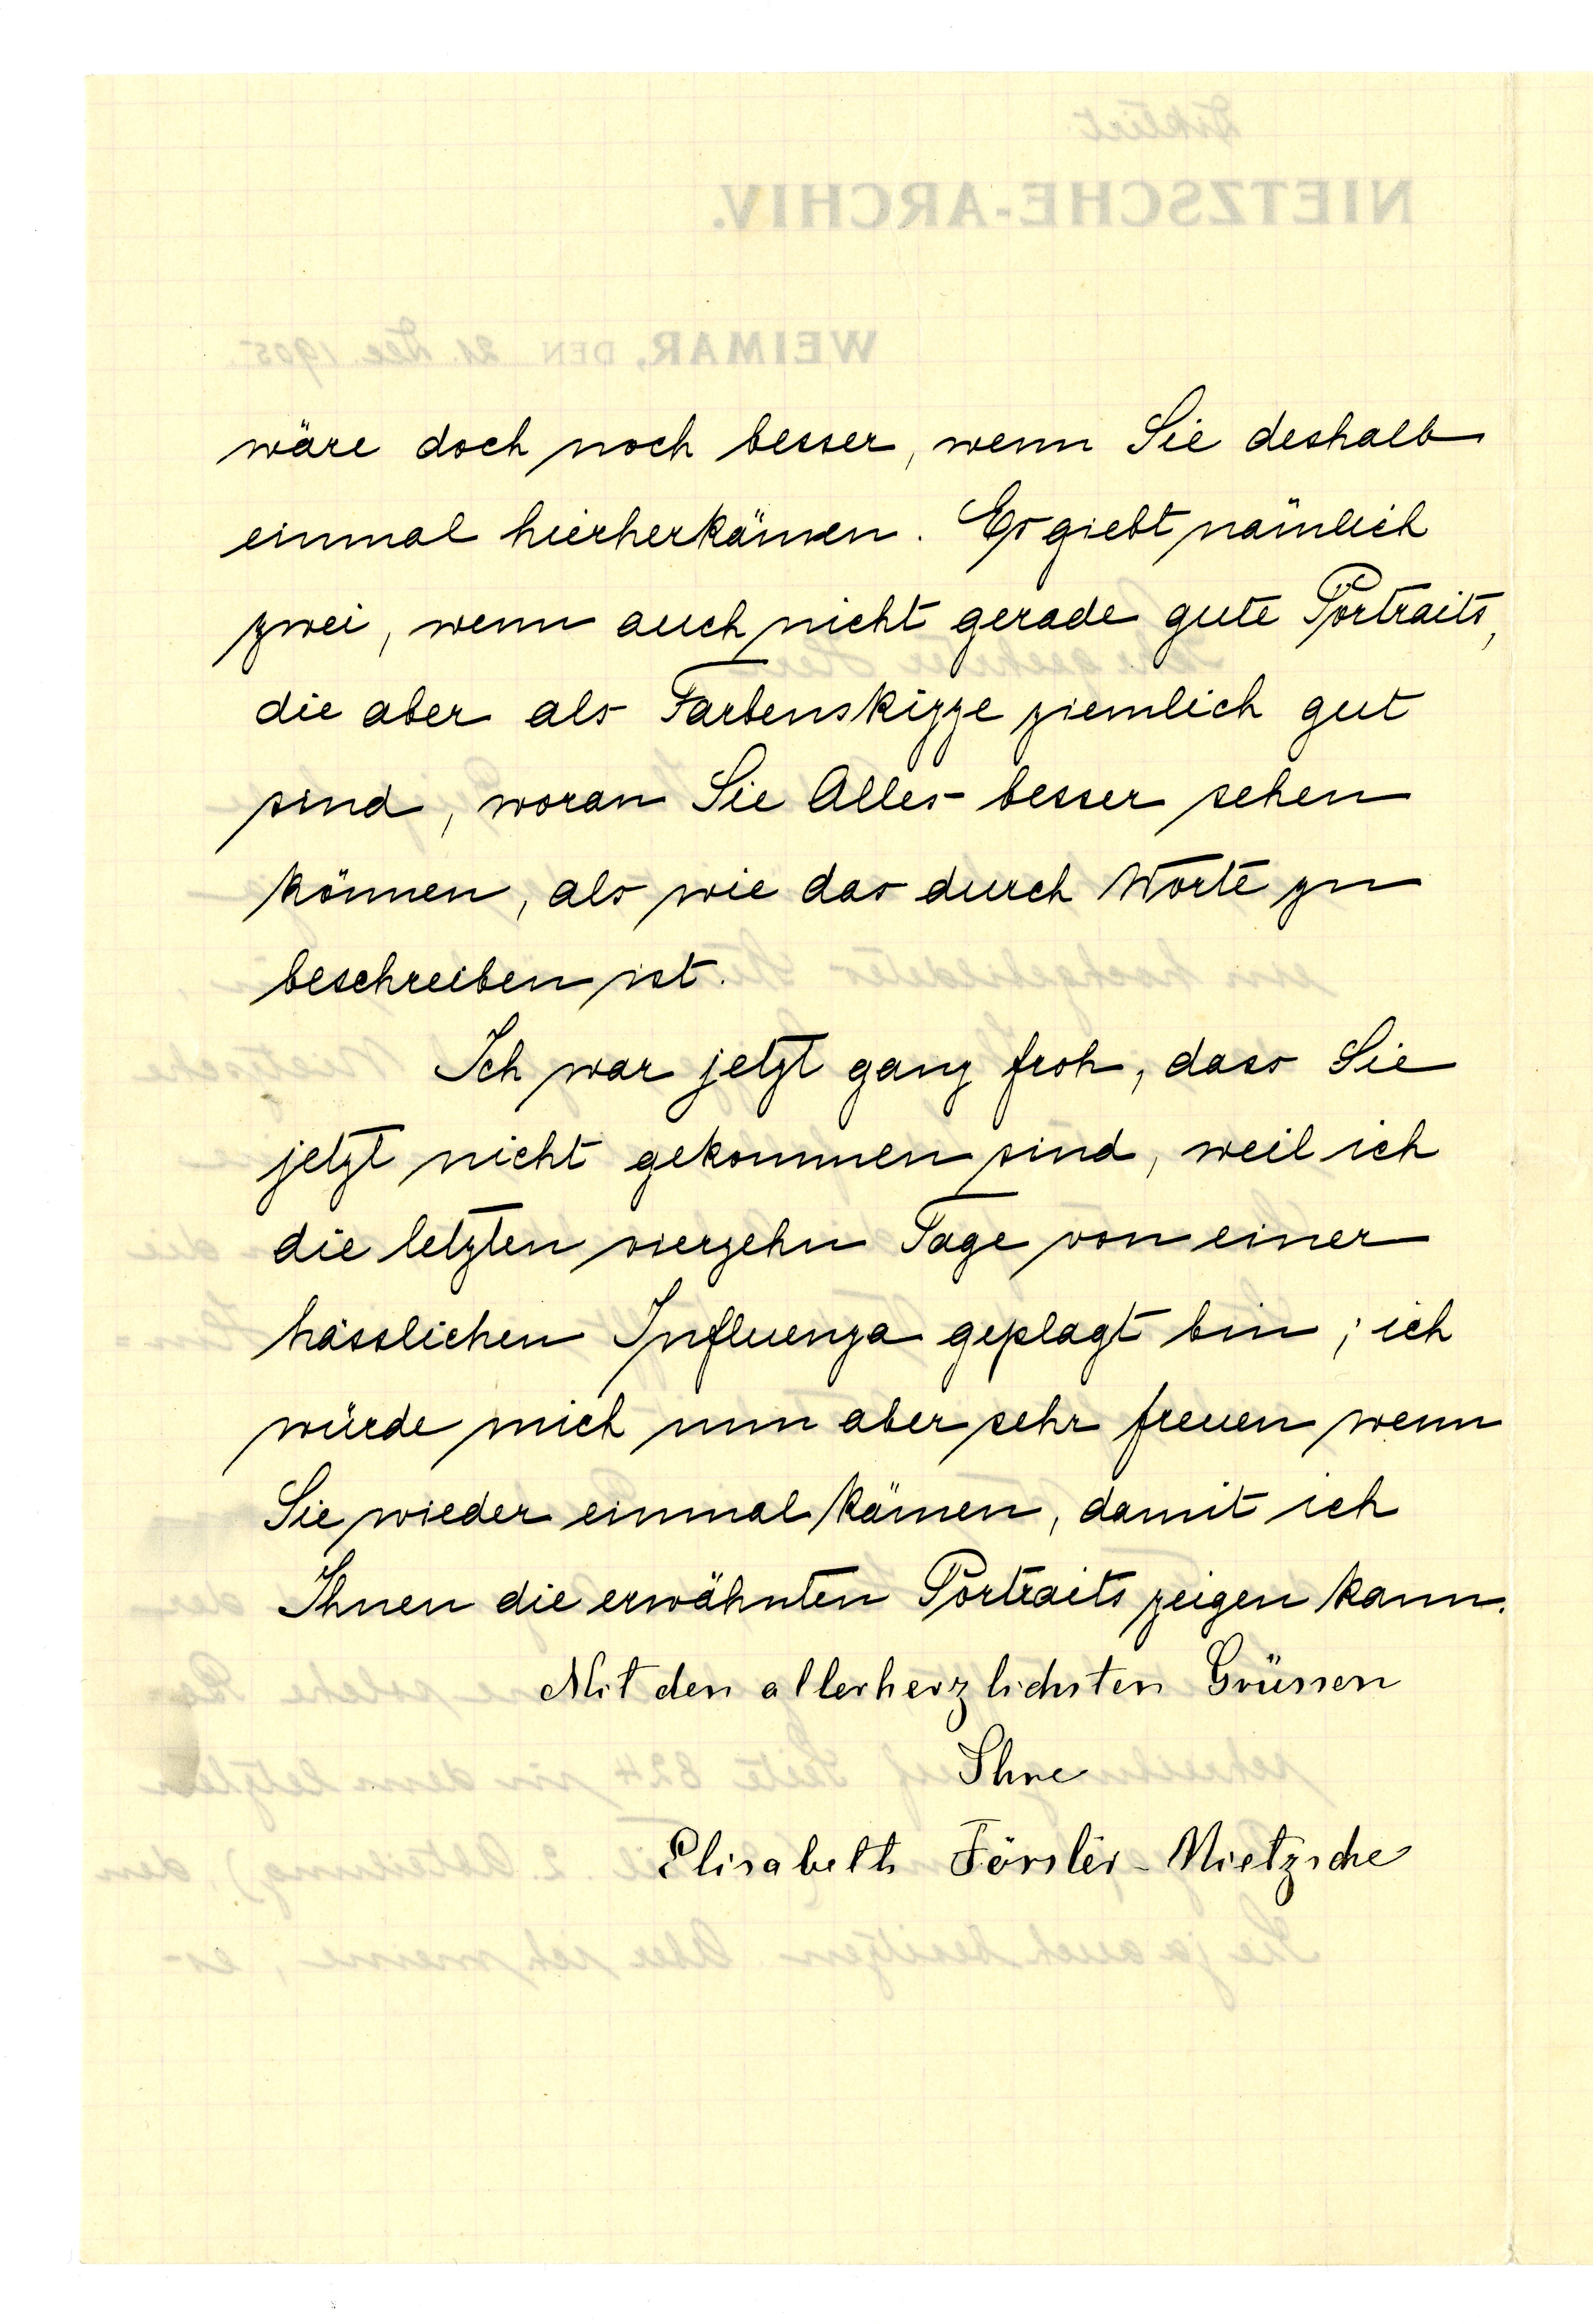 Diktiert
NIETZSCHE-ARCHIV.
WEIMAR, DEN 21. Dec. 1905.
wäre doch noch besser, wenn Sie deshalb
einmal hierherkämen. Es giebt nämlich
zwei, wenn auch nicht gerade gute Portraits,
die aber als Farbenskizze ziemlich gut
sind, woran Sie Alles besser sehen
können, als wie das durch Worte zu
beschreiben ist.
Ich war jetzt ganz froh, dass Sie
jetzt nicht gekommen sind, weil ich
die letzten vierzehn Tage von einer
hässlichen Influenza geplagt bin; ich
würde mich nun aber sehr freuen wenn
Sie wieder einmal kämen, damit ich
Ihnen die erwähnten Portraits zeigen kann.
Mit den allerherzlichsten Grüssen
Ihre
Elisabeth Förster-Nietzsche